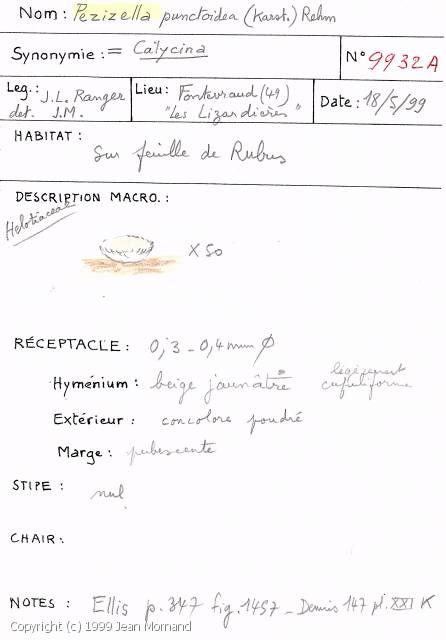 Nom : Pezizella punctoidea (Karst.) Rehm
Synonymie : = Calycina
N° 9932A
Leg. : J.L. Ranger
det. J.M.
Lieu : Fontevraud (49)
"Les Lizardières"
Date : 18/5/99
HABITAT :
Sur feuille de Rubus
DESCRIPTION MACRO. :
Helotiaceae
x 50
RÉCEPTACLE : 0,3 - 0,4 mm Ø
légèrement
Hyménium : beige jaunâtre cupuliforme
Extérieur : concolore poudré
Marge : pubescente
STIPE : nul
CHAIR :
NOTES : Ellis p. 347 fig. 1457 - Dennis 147 pl. XXI K
Copyright (c) 1999 Jean Mornand